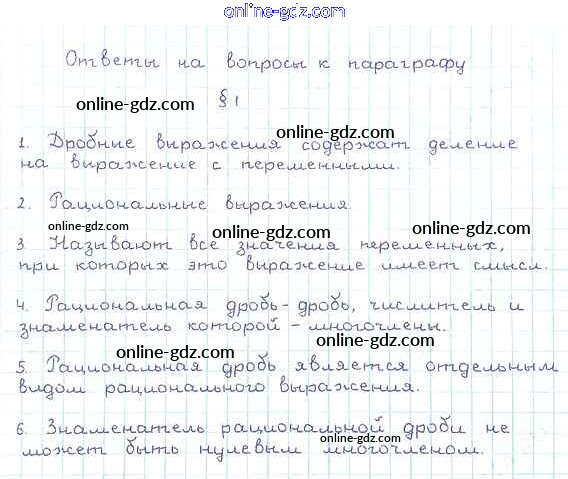 online-gdz.com
Ответы на вопросы к параграфу
online-gdz.com § 1 online-gdz.com
1. Дробные выражения содержат деление
на выражение с переменными.
online-gdz.com
2. Рациональные выражения.
online-gdz.com online-gdz.com online-gdz.com
3. Называют все значения переменных,
при которых это выражение имеет смысл.
4. Рациональная дробь - дробь, числитель и
знаменатель которой - многочлены.
online-gdz.com
5. Рациональная дробь является отдельным
видом рационального выражения.
6. Знаменатель рациональной дроби не
online-gdz.com online-gdz.com
может быть нулевым многочленом.